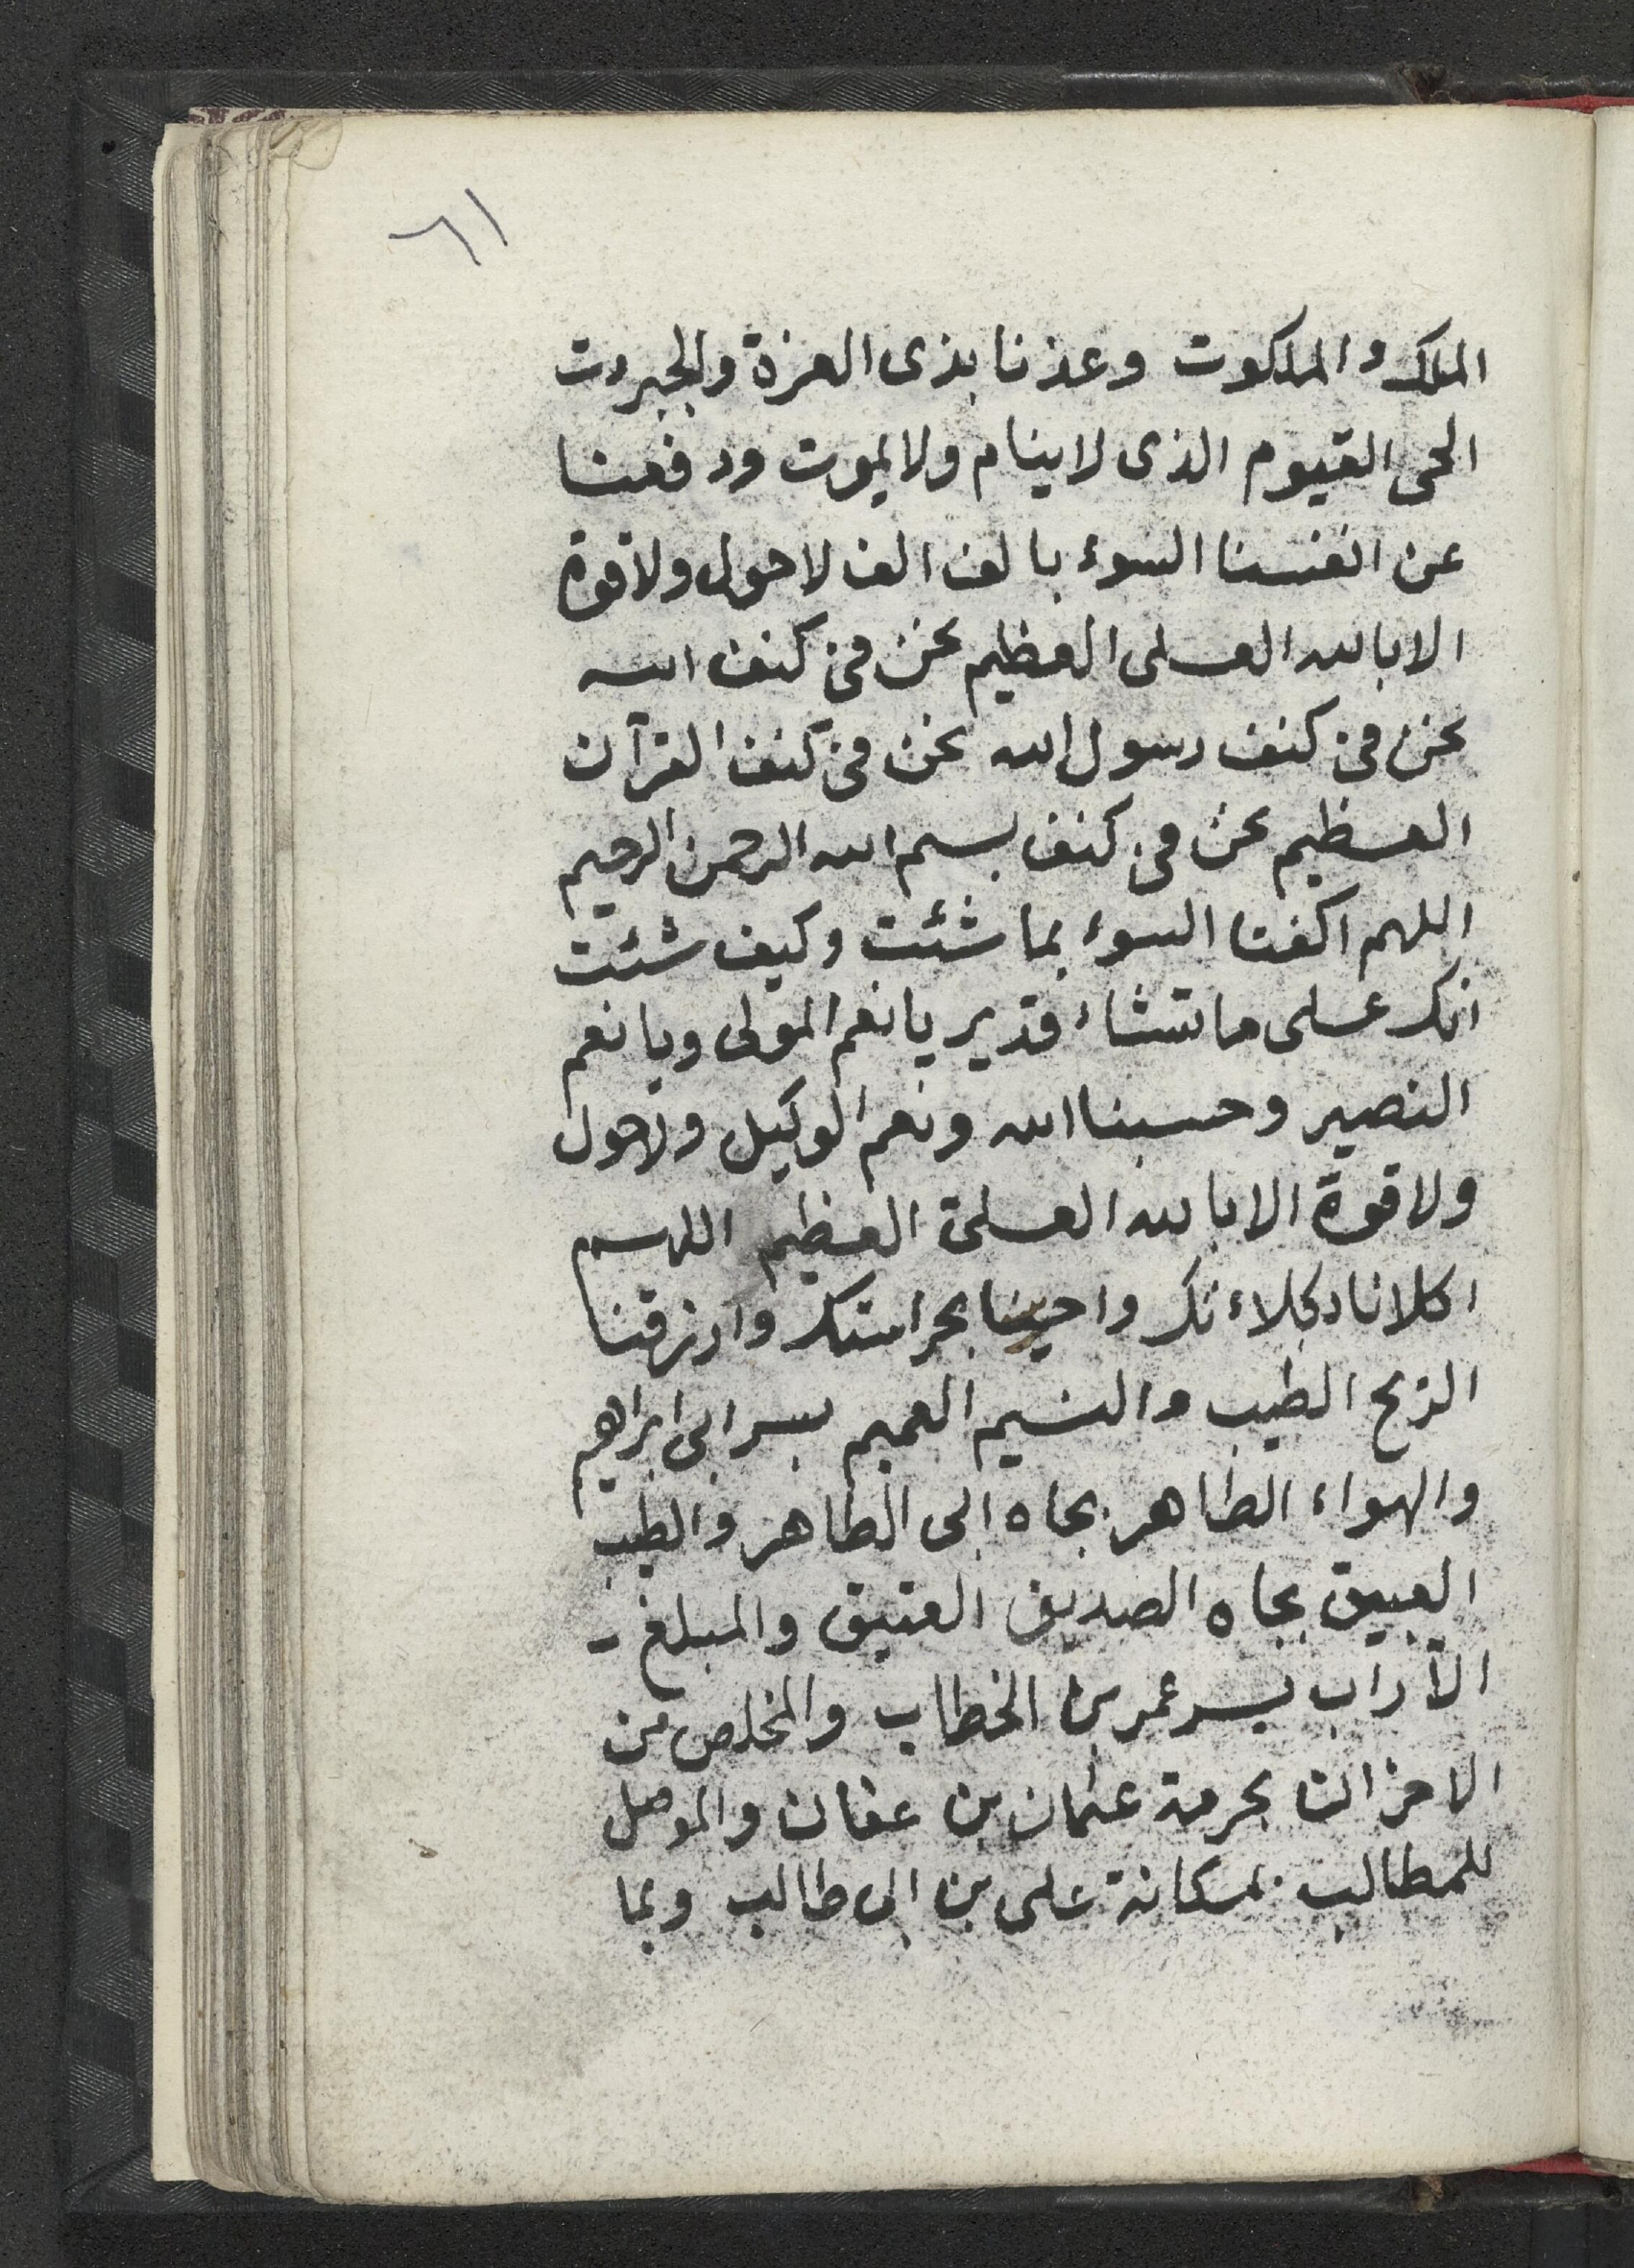 ٦١
الملك والملكوت وعذنا بذى العزة والجبروت
الحى القيوم الذى لا ينام ولا يموت ودفعنا
عن انفسنا السوء بالف الف لا حول ولا قوة
الا بالله العلى العظيم نحن فى كنف الله
نحن فى كنف رسول الله نحن فى كنف القرآن
العظيم نحن فى كنف بسم الله الرحمن الرحيم
اللهم اكفنا السوء بما شئت وكيف شئت
انك على ما تشاء قدير يا نعم المولى ويا نعم
النصير وحسبنا الله ونعم الوكيل ولا حول
ولا قوة الا بالله العلى العظيم اللهم
اكلانا بكلاءتك واحرسنا بحراستك وارزقنا
الريح الطيب والنسيم العميم بسر ابى ابراهيم
والهواء الطاهر بجاه ابى الطاهر والطيب
العبيق بجاه الصديق العتيق والمبلغ -
الآراب بسر عمر بن الخطاب والمخلص من
الاحزان بحرمة عثمان بن عفان والموصل
للمطالب بمكانة على بن ابى طالب وبما